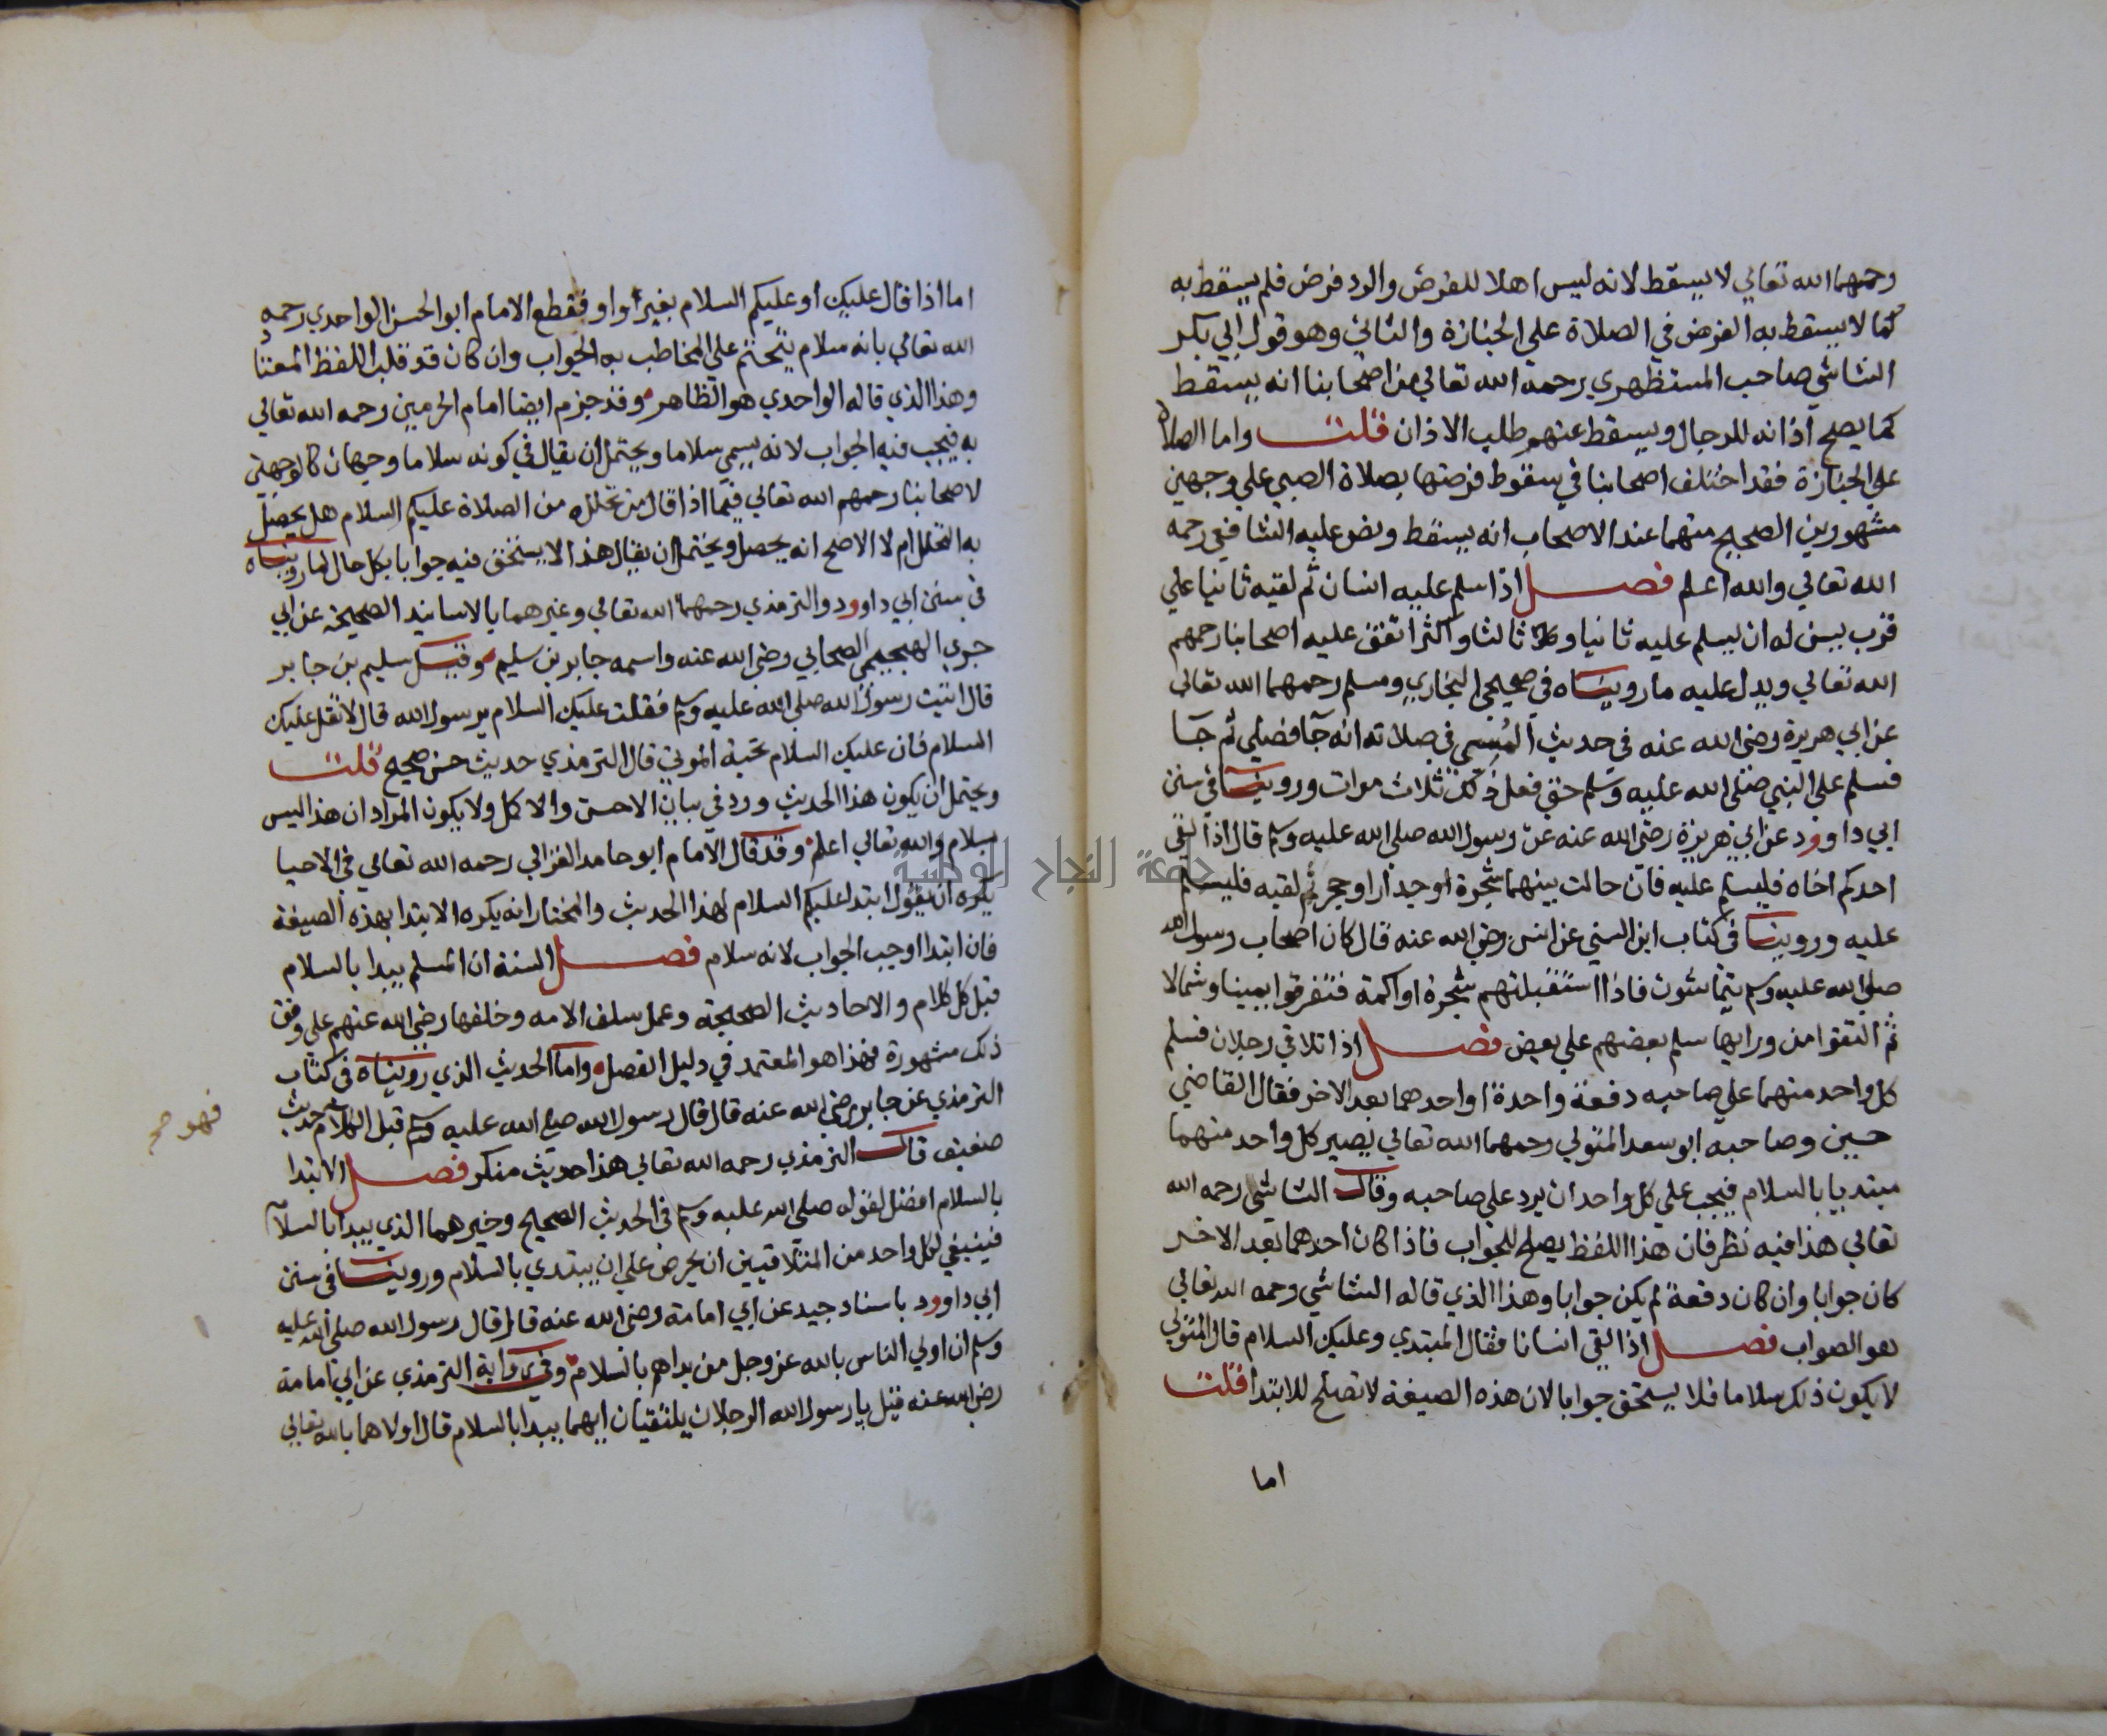 رحمهما الله تعالي لا يسقط لانه ليس اهلا للفرض والرد فرض فلم يسقط به
كما لا يسقط به الفرض في الصلاة علي الجنازة والثاني وهو قول ابي بكر
الشاشي صاحب المستظهري رحمه الله تعالي من اصحابنا انه يسقط
كما يصح اذانه للرجال ويسقط عنهم طلب الاذان قلت واما الصلاة
علي الجنازة فقد اختلف اصحابنا في سقوط فرضها بصلاة الصبي علي وجهين
مشهورين الصحيح منهما عند الاصحاب انه يسقط ونص عليه الشافعي رحمه
الله تعالي والله اعلم فصل اذا سلم عليه انسان ثم لقيه ثانيا علي
قرب يسن له ان يسلم عليه ثانيا وثالثا واكثر اتفق عليه اصحابنا رحمهم
الله تعالي ويدل عليه ما رويناه في صحيحي البخاري ومسلم رحمهما الله تعالي
عن ابي هريرة رضي الله عنه في حديث المسي في صلاته انه جا فصلي ثم جا
فسلم علي النبي صلي الله عليه وسلم حتي فعل ذلك ثلاث مرات وروينا في سنن
ابي داوود عن ابي هريرة رضي الله عنه عن رسول الله صلي الله عليه وسلم قال اذا لقي
احدكم اخاه فليسلم عليه فان حالت بينهما شجرة او جدار او حجر ثم لقيه فليسلم
عليه وروينا في كتاب ابن السني عن انس رضي الله عنه قال كان اصحاب رسول الله
صلي الله عليه وسلم يتماشون فاذا استقبلتهم شجرة او اكمة فتفرقوا يمينا وشمالا
ثم التقوا من ورايها سلم بعضهم علي بعض فصل اذا تلاقي رجلان فسلم
كل واحد منهما علي صاحبه دفعة واحدة او احدهما بعد الاخر فقال القاضي
حسين وصاحبه ابو سعد المتولي رحمهما الله تعالي يصير كل واحد منهما
مبتديا بالسلام فيجب علي كل واحد ان يرد علي صاحبه وقال الشاشي رحمه الله
تعالي هذا فيه نظر فان هذا اللفظ يصلح للجواب فاذا كان احدهما بعد الاخر
كان جوابا وان كان دفعة لم يكن جوابا وهذا الذي قاله الشاشي رحمه الله تعالي
هو الصواب فصل اذا لقي انسانا فقال المبتدي وعليك السلام قال المتولي
لا يكون ذلك سلاما فلا يستحق جوابا لان هذه الصيغة لا تصلح للابتدا قلت
اما
اما اذا قال عليك او عليكم السلام بغير واو فقطع الامام ابو الحسن الواحدي رحمه
الله تعالي بانه سلام يتحتم علي المخاطب به الجواب وان كان قد قلب اللفظ المعتاد
وهذا الذي قاله الواحدي هو الظاهر وقد جزم ايضا امام الحرمين رحمه الله تعالي
به فيجب فيه الجواب لانه يسمي سلاما ويحتمل ان يقال في كونه سلاما وجهان كالوجهين
لاصحابنا رحمهم الله تعالي فيما اذا قال من تحلله من الصلاة عليكم السلام هل يحصل
به التحلل ام لا الاصح انه يحصل ويحتمل ان يقال هذا لا يستحق فيه جوابا بكل حال لما رويناه
في سنن ابي داوود والترمذي رحمهما الله تعالي وغيرهما بالاسانيد الصحيحة عن ابي
جري الهجيمي الصحابي رضي الله عنه واسمه جابر بن سليم وقيل سليم بن جابر
قال اتيت رسول الله صلي الله عليه وسلم فقلت عليك السلام يرسول الله قال لا تقل عليك
السلام فان عليك السلام تحية الموتي قال الترمذي حديث حسن صحيح قلت
ويحتمل ان يكون هذا الحديث ورد في بيان الاحسن والاكمل ولا يكون المراد ان هذا ليس
بسلام والله تعالي اعلم وقد قال الامام ابو حامد الغزالي رحمه الله تعالي في الاحيا
يكره ان يقول ابتدا عليكم السلام لهذا الحديث والمختار انه يكره الابتدا بهذه الصيغة
فان ابتدا اوجب الجواب لانه سلام فصل السنة ان المسلم يبدا بالسلام
قبل كل كلام والاحاديث الصحيحة وعمل سلف الامه وخلفها رضي الله عنهم علي وفق
ذلك مشهورة فهذا هو المعتمد في دليل الفصل واما الحديث الذي رويناه في كتاب
الترمذي عن جابر رضي الله عنه قال قال رسول الله صلي الله عليه وسلم قبل الكلام حديث
فهو صح
ضعيف قال الترمذي رحمه الله تعالي هذا حديث منكر فصل الابتدا
بالسلام افضل لقوله صلي الله عليه وسلم في الحديث الصحيح وخيرهما الذي يبدا بالسلام
فينبغي لكل واحد من المتلاقيين ان يحرص علي ان يبتدي بالسلام وروينا في سنن
ابي داوود باسناد جيد عن ابي امامة رضي الله عنه قال قال رسول الله صلي الله عليه
وسلم ان اولي الناس بالله عز وجل من بداهم بالسلام وفي رواية الترمذي عن ابي امامة
رضي الله عنه قيل يا رسول الله الرجلان يلتقيان ايهما يبدا بالسلام قال اولاهما بالله تعالي
جامعة النجاح الوطنية